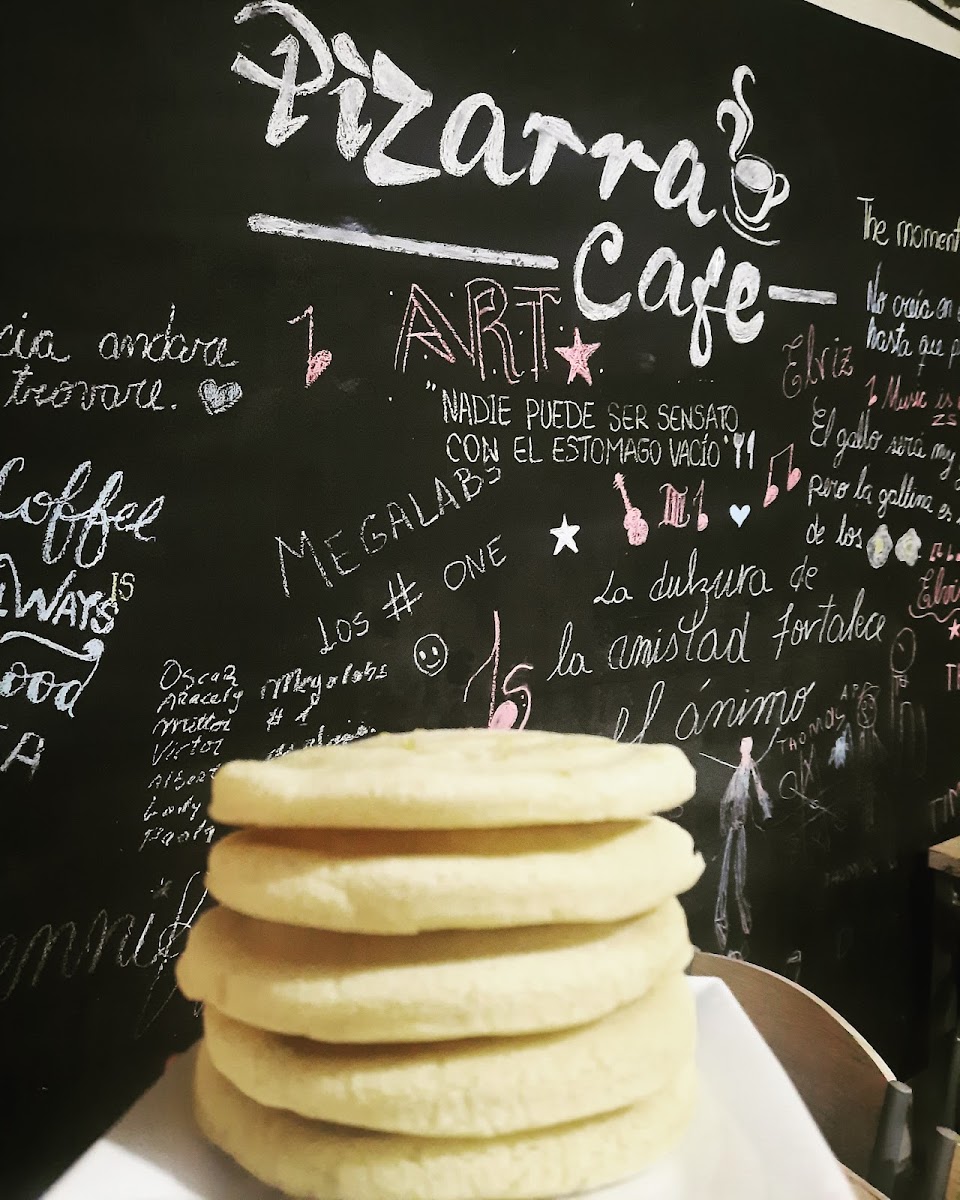 Pizarra
Cafe
ART
"NADIE PUEDE SER SENSATO
CON EL ESTOMAGO VACÍO"
cia andare
trovare.
Coffee
IS
ALWAYS
Good
MEGALABS
LOS # ONE
La dulzura de
la amistad fortalece
el ánimo
Oscar Megalabs
Aracely # 1
Victor
Albert
Paola
The moment
No creía en
hasta que p
Elviz
Music is
El gallo será my
pero la gallina es
de los
Elvi
THOMAS